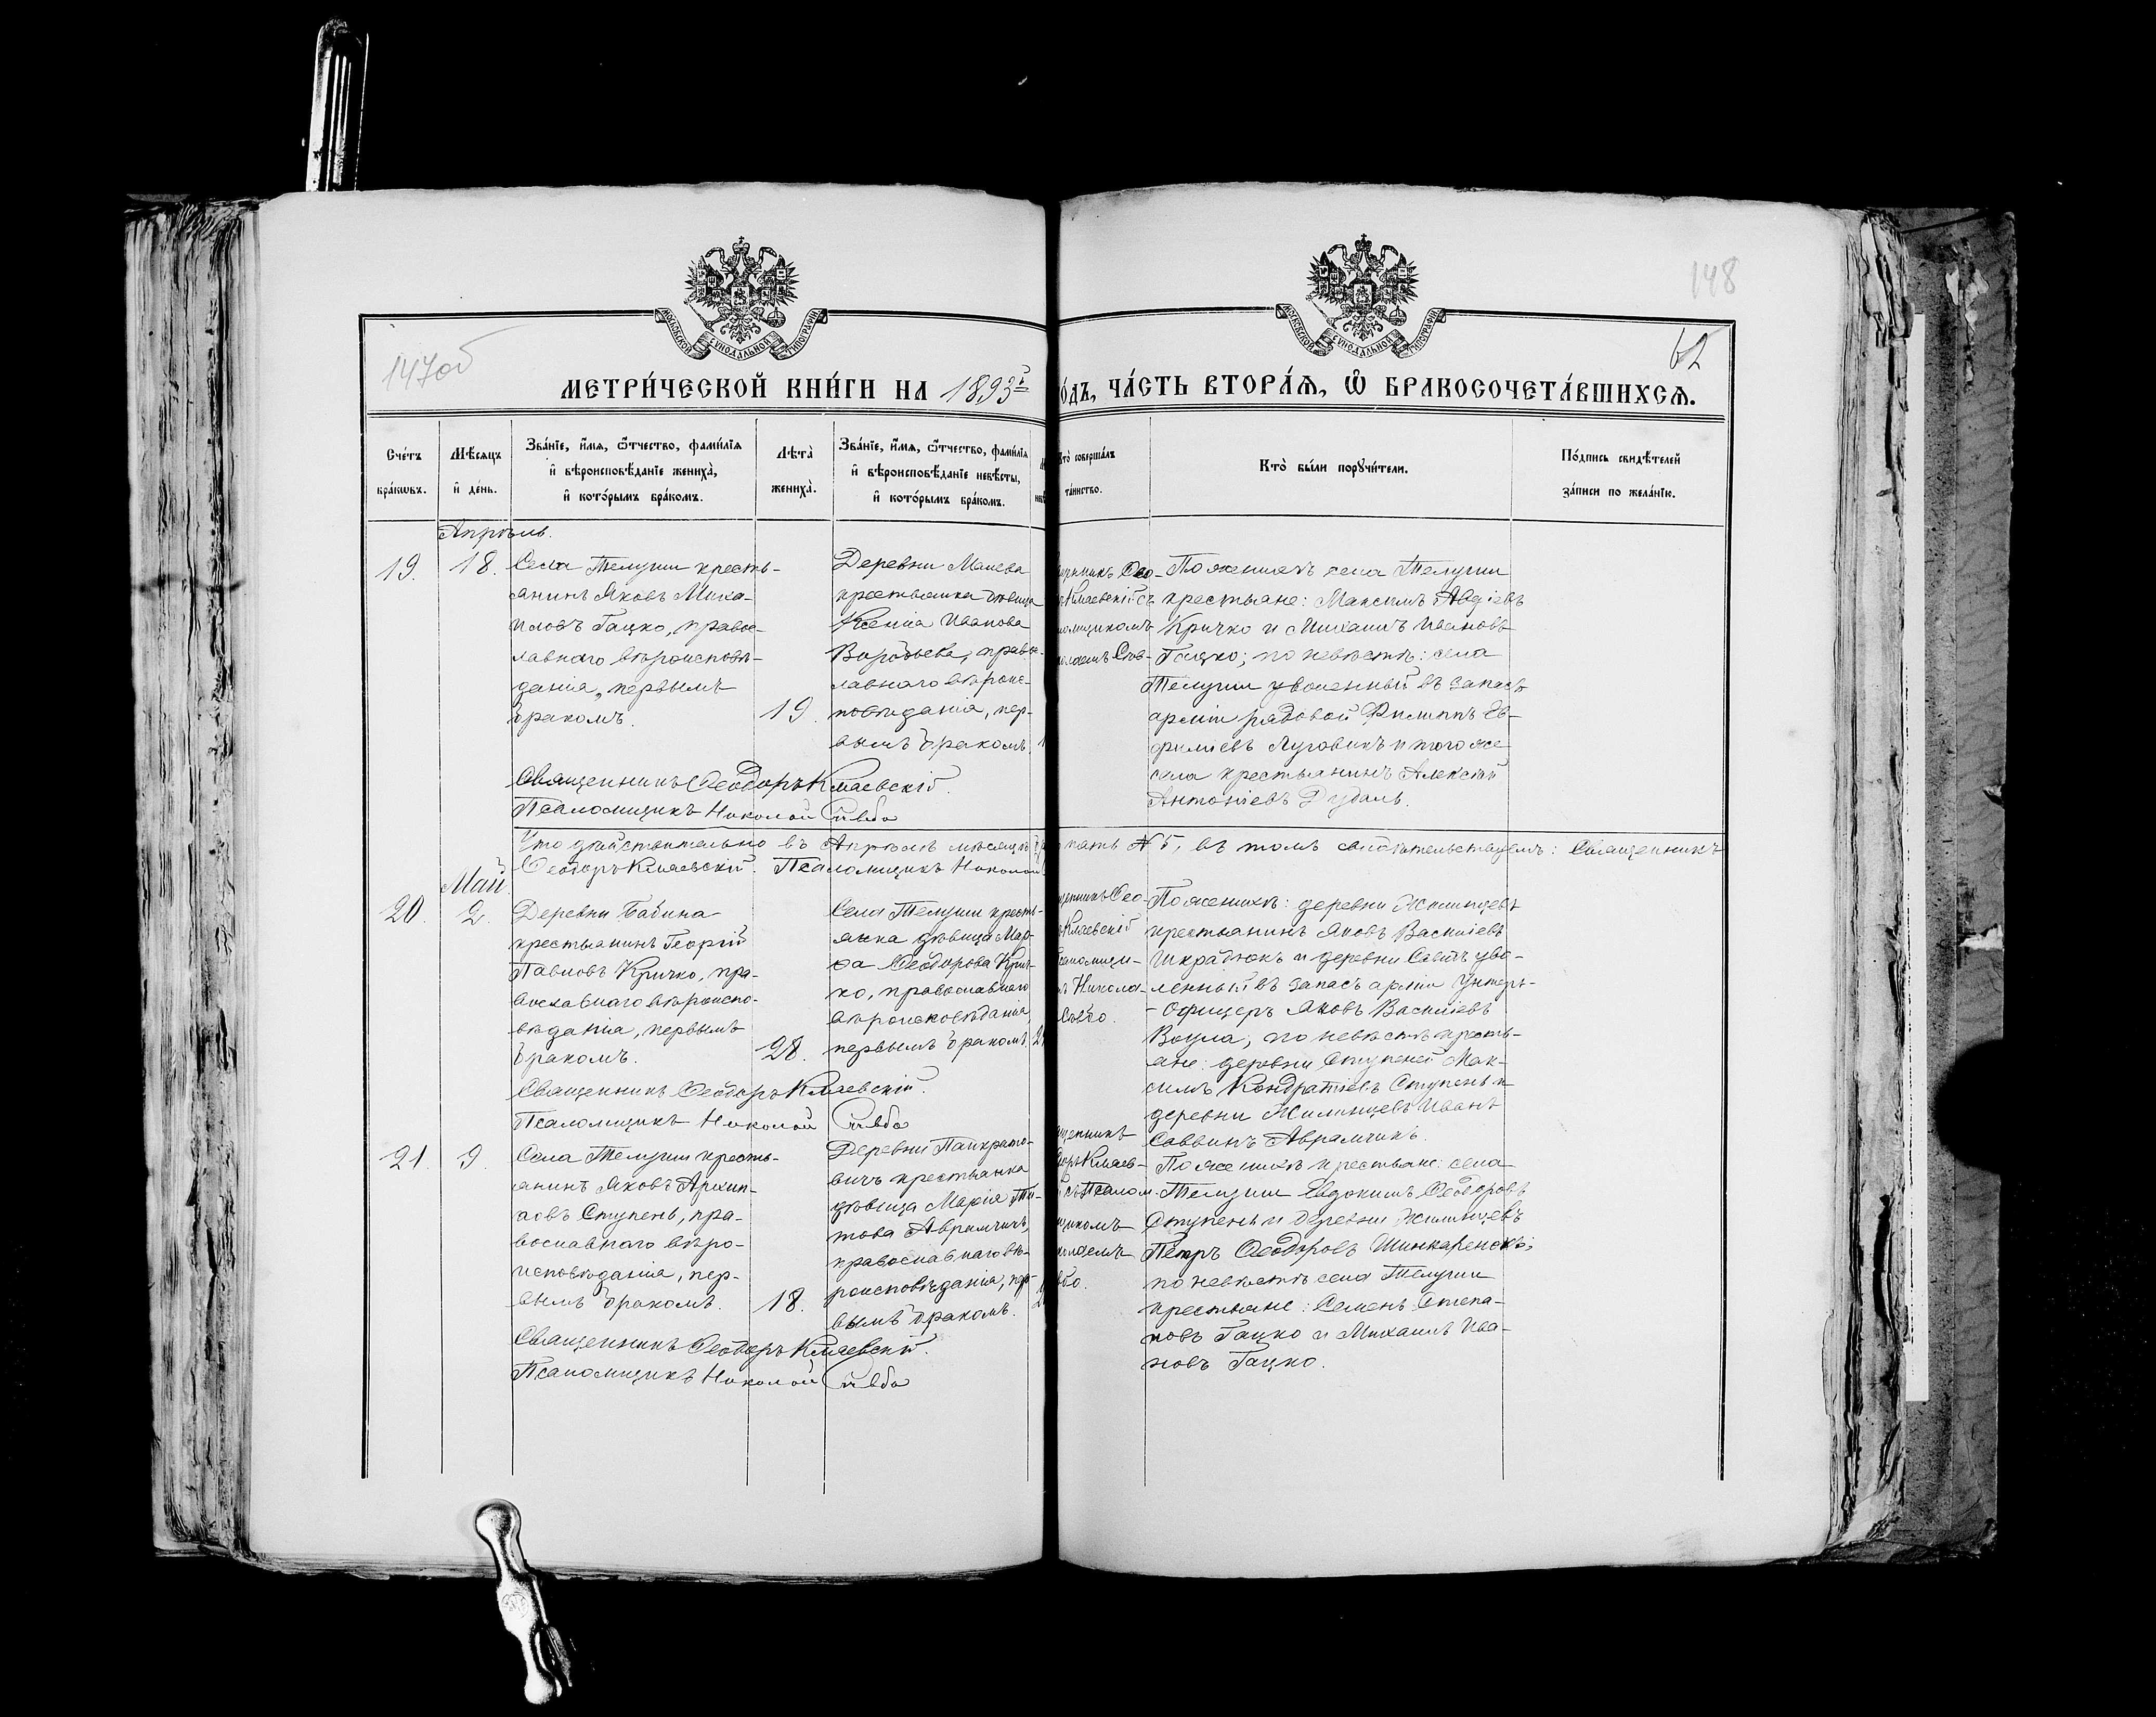 148
147об
62
МОСКОВСКОЙ СУНОДАЛЬНОЙ ТИПОГРАФІИ
МОСКОВСКОЙ СУНОДАЛЬНОЙ ТИПОГРАФІИ
МЕТРИ́ЧЕСКОЙ КНИ́ГИ НА 1893й
О́ДЪ, ЧА́СТЬ ВТОРА́Ѧ, Ѽ БРАКОСОЧЕТА́ВШИХСѦ.
Сче́тъ бра́кѡвъ.
Мѣ́сяцъ и҆ де́нь.
Зва́нїе, и҆́мя, ѻ҆́тчество, фами́лїя
и҆ вѣроисповѣ́данїе жениха̀,
и҆ кото́рымъ бра́комъ.
Лѣта̀ жениха̀.
Зва́нїе, и҆́мя, ѻ҆́тчество, фами́лїя
и҆ вѣроисповѣ́данїе невѣ́сты,
и҆ кото́рымъ бра́комъ.
Кто̀ соверша́лъ
та́инство.
Кто̀ бы́ли порꙋчи́тели.
По́дпись свидѣ́телей
за́писи по жела́нїю.
Апрѣль.
19.
18.
Села Телуши кресть-
янинъ Яковъ Миха-
иловъ Гацко, правос-
лавнаго вѣроисповѣ-
данія, первымъ
бракомъ.
19.
Деревни Манева
крестьянка дѣвица
Ксенія Иванова
Воробьева, правос-
лавнаго вѣроис-
повѣданія, пер-
вымъ бракомъ.
Ѳео-
Кляевскій съ
омщикомъ
олаемъ Сѣв-
По женихѣ села Телуши
крестьяне: Максимъ Авдіевъ
Кричко и Михаилъ Ивановъ
Гацко; по невѣстѣ: села
Телуши уволенный въ запасъ
арміи рядовой Филиппъ Ев-
фиміевъ Луговикъ и того же
села крестьянинъ Алексій
Антоніевъ Дубаль.
Священникъ Ѳеодоръ Кляевскій.
Псаломщикъ Николай Сѣвбо
Что дѣйствительно въ Апрѣлѣ мѣсяцѣ
пять № 5, въ томъ свидѣтельствуемъ: Священникъ
Ѳеодоръ Кляевскій. Псаломщикъ Николай
Май
20.
2.
Деревни Бабина
крестьянинъ Георгій
Павловъ Кричко, пра-
вославнаго вѣроиспо-
вѣданія, первымъ
бракомъ.
28.
Села Телуши кресть-
янка дѣвица Мар-
ѳа Ѳеодорова Крич-
ко, православнаго
вѣроисповѣданія,
первымъ бракомъ.
щенникъ Ѳео-
Кляевскій
саломщи-
Никола-
Сѣвбо.
По женихѣ: деревни Жилинцевъ
крестьянинъ Яковъ Василіевъ
Шкрабюкъ и деревни уво-
ленный въ запасъ арміи Унтеръ-
-Офицеръ Яковъ Василіевъ
по невѣстѣ кресть-
яне: деревни Ступеней Мак-
симъ Кондратіевъ Ступень и
деревни Жилинцевъ Иванъ
Саввинъ Аврамчикъ.
Священникъ Ѳеодоръ Кляевскій.
Псаломщикъ Николай Сѣвбо
21.
9.
Села Телуши кресть-
янинъ Яковъ Архип-
повъ Ступень, пра-
вославнаго вѣро-
исповѣданія, пер-
вымъ бракомъ.
18.
Деревни Панкрато-
вичъ крестьянка
дѣвица Марія Ти-
това Аврамчикъ,
православнаго вѣ-
роисповѣданія, пер-
вымъ бракомъ.
щенникъ
Кляев-
съ Псалом-
щикомъ
колаемъ
вбо.
По женихѣ крестьяне: села
Телуши Евдокимъ Ѳеодоровъ
Ступень и деревни Жилинцевъ
Петръ Ѳеодоровъ Шинкаренокъ;
по невѣстѣ села Телуши
крестьяне: Семенъ Степа-
новъ Гацко и Михаилъ Ива-
новъ Гацко.
Священникъ Ѳеодоръ Кляевскій.
Псаломщикъ Николай Сѣвбо